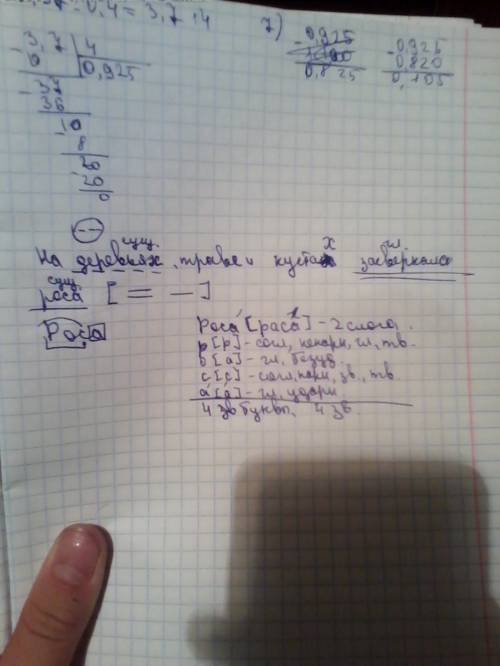 0,4 = 3,7 : 4
7)
3,7 | 4
- 0 | 0,925
- 37
36
- 10
8
- 20
20
0
- 0,925
0,825
- 0,925
0,820
0,105
сущ. гл.
На деревьях, траве и кустах засверкала
сущ.
роса [ = — ]
Роса
Роса [раса] - 2 слога.
р [р] - согл,
[а] - гл, безуд.
с [с] - согл, тв.
а [а] - гл, ударн.
4 букв 4 зв